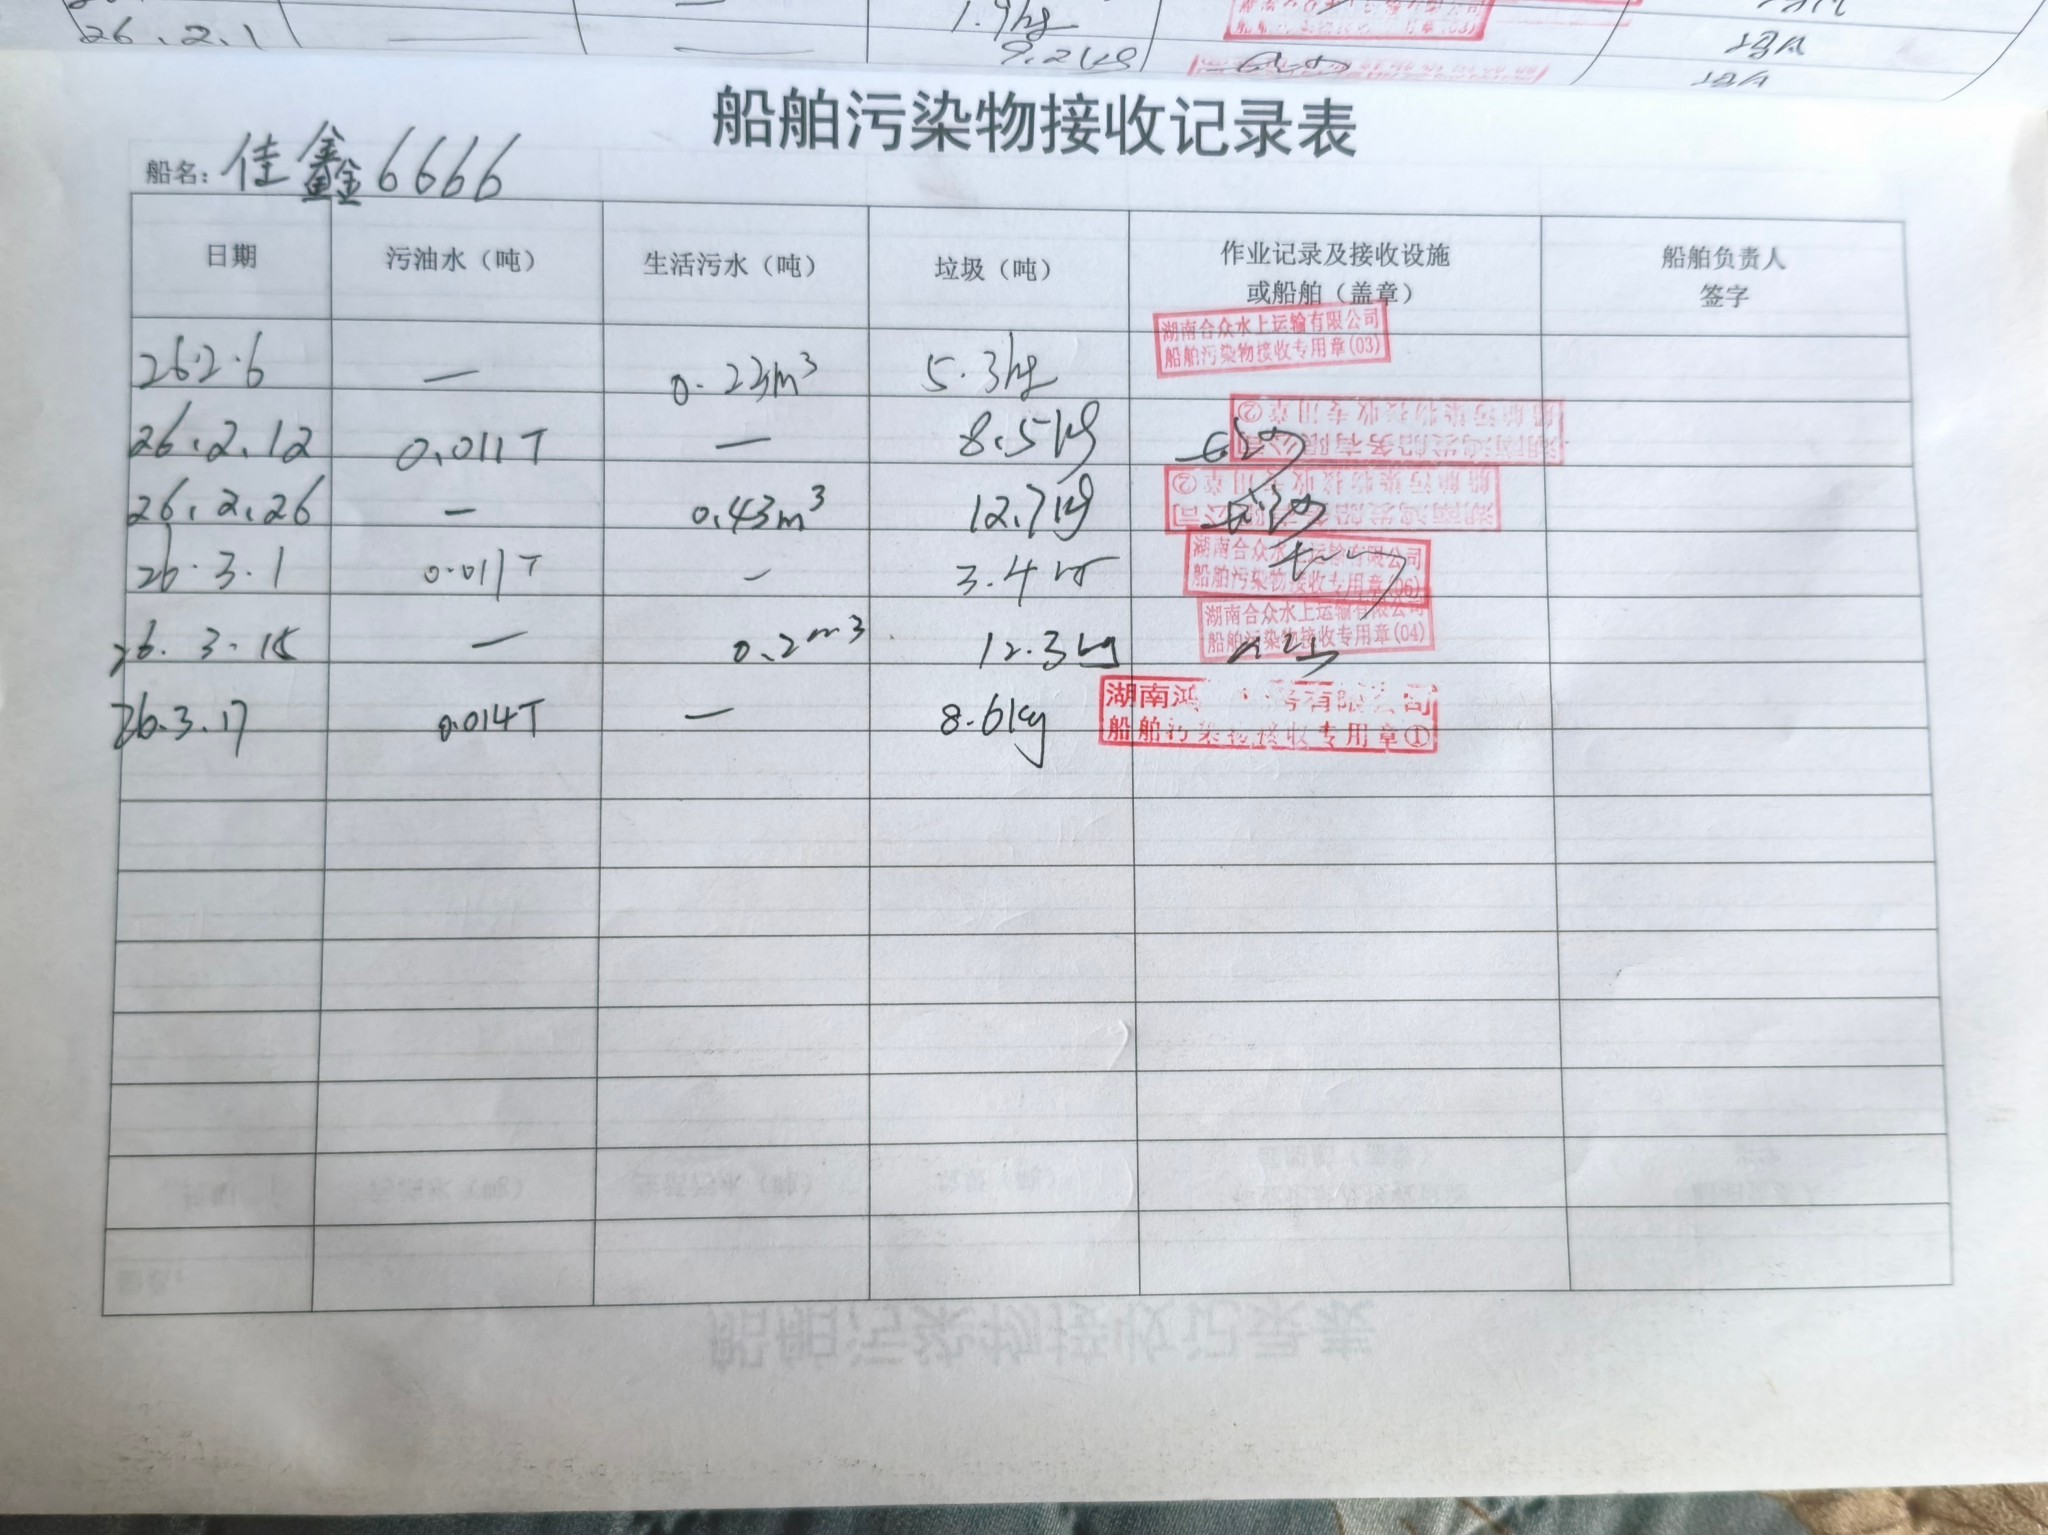 26.2.1 — — 1.9kg
9.2kg
船舶污染物接收记录表
船名：佳鑫6666
日期 污油水（吨） 生活污水（吨） 垃圾（吨） 作业记录及接收设施或船舶（盖章） 船舶负责人签字
湖南合众水上运输有限公司
船舶污染物接收专用章(03)
26.2.6 — 0.23m³ 5.3kg
船舶污染物接收专用章②
湖南鸿发船务有限公司
26.2.12 0.011T — 8.5kg
船舶污染物接收专用章②
湖南鸿发船务有限公司
26.2.26 — 0.43m³ 12.7kg
湖南合众水上运输有限公司
船舶污染物接收专用章(06)
26.3.1 0.011T — 3.4
湖南合众水上运输有限公司
船舶污染物接收专用章(04)
26.3.15 — 0.2m³ 12.3kg
湖南鸿 务有限公司
船舶污染物接收专用章①
26.3.17 0.014T — 8.6kg